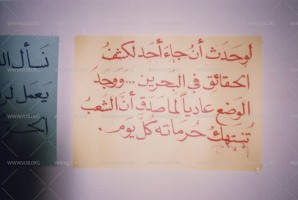 لو حدث أن جاء أحد لكشف
الحقائق في البحرين ... ووجد
الوضع عادياً لما صدق أن الشعب
تنتهك حرماته كل يوم .
نسأل
يعمل